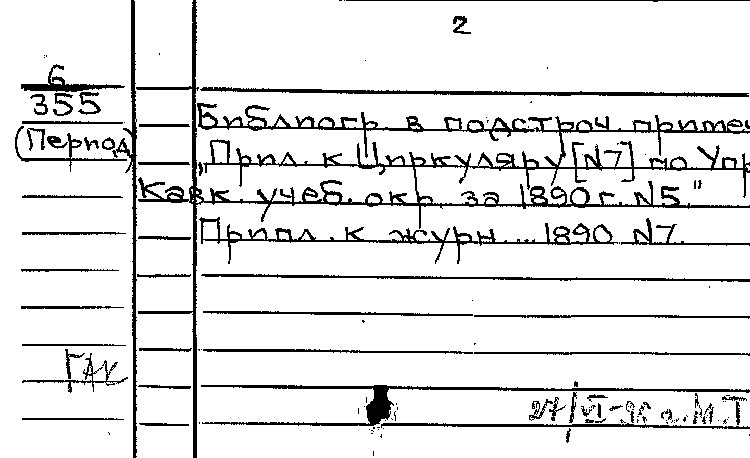 2
6
355
(Период)
Библиогр. в подстроч. примеч
„Прил. к Циркуляру [N7] по Упр
Кавк. учеб. окр. за 1890 г. N5."
Прил. к журн... 1890 N7.
ГАК
27/VI-96 г. М.Т.